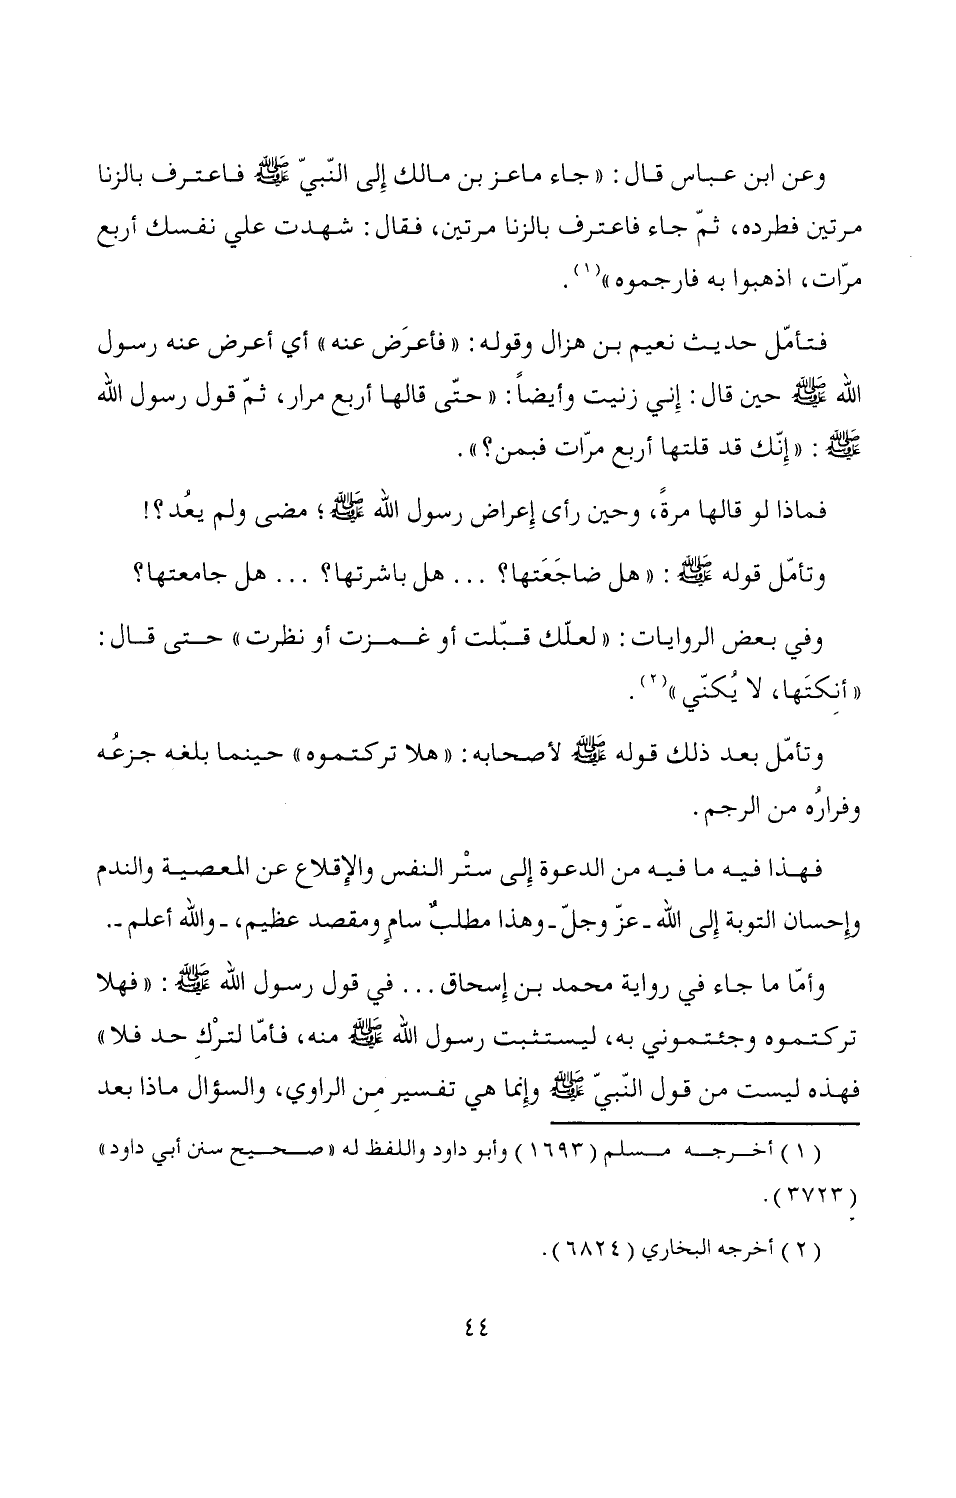 وعن ابن عباس قال: «جاء ماعز بن مالك إلى النّبيّ ﷺ فاعترف بالزنا
مرتين فطرده، ثمّ جاء فاعترف بالزنا مرتين، فقال: شهدت علي نفسك أربع
مرّات، اذهبوا به فارجموه»(١).
فتأمّل حديث نعيم بن هزال وقوله: «فأعرَض عنه» أي أعرض عنه رسول
الله ﷺ حين قال: إني زنيت وأيضاً: «حتّى قالها أربع مرار، ثمّ قول رسول الله
ﷺ: «إنّك قد قلتها أربع مرّات فبمن؟».
فماذا لو قالها مرةً، وحين رأى إعراض رسول الله ﷺ؛ مضى ولم يعُد؟!
وتأمّل قوله ﷺ: «هل ضاجَعَتها؟ ... هل باشرتها؟ ... هل جامعتها؟
وفي بعض الروايات: «لعلّك قبّلت أو غمزت أو نظرت» حتى قال:
«أنكتَها، لا يُكنّي»(٢).
وتأمّل بعد ذلك قوله ﷺ لأصحابه: «هلا تركتموه» حينما بلغه جزعُه
وفرارُه من الرجم.
فهذا فيه ما فيه من الدعوة إلى ستْر النفس والإقلاع عن المعصية والندم
وإحسان التوبة إلى الله ـ عزّ وجلّ ـ وهذا مطلبٌ سامٍ ومقصد عظيم، ـ والله أعلم ـ.
وأمّا ما جاء في رواية محمد بن إسحاق... في قول رسول الله ﷺ: «فهلا
تركتموه وجئتموني به، ليستثبت رسول الله ﷺ منه، فأمّا لترْكِ حد فلا»
فهذه ليست من قول النّبيّ ﷺ وإنما هي تفسير مِن الراوي، والسؤال ماذا بعد
(١) أخرجه مسلم (١٦٩٣) وأبو داود واللفظ له «صحيح سنن أبي داود»
(٣٧٢٣).
(٢) أخرجه البخاري (٦٨٢٤).
٤٤